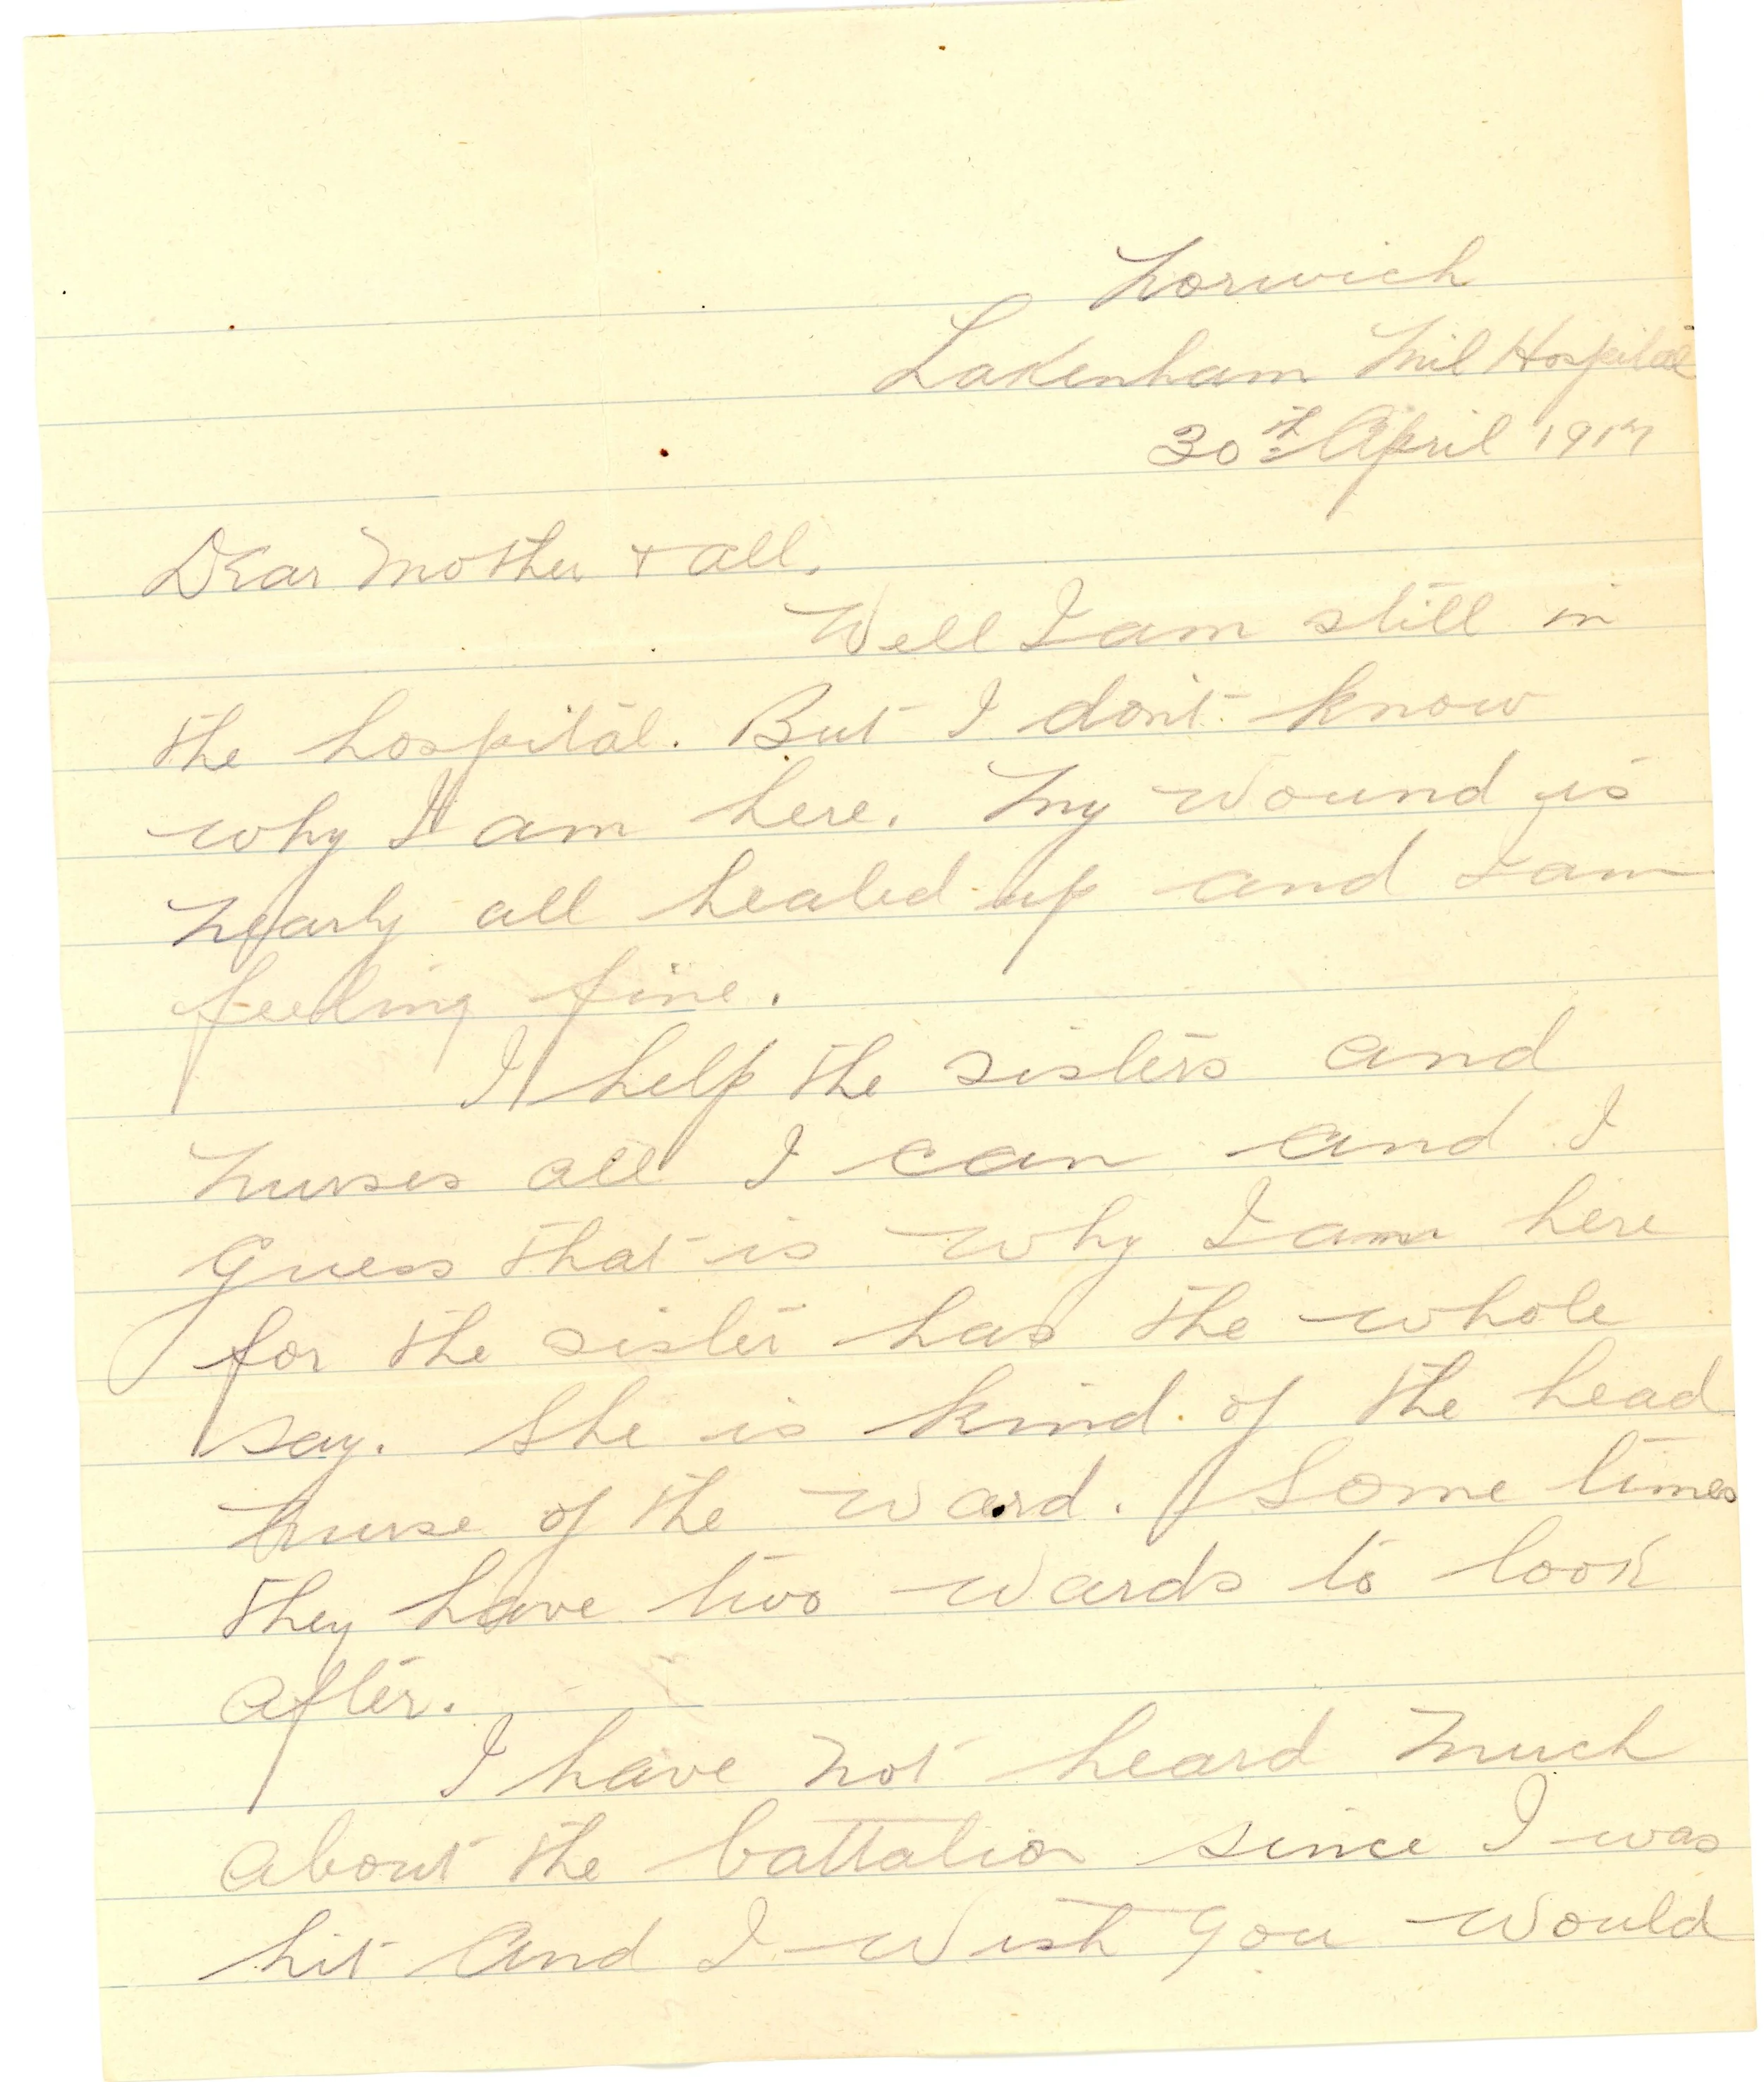 Norwich
Lakenham Mil Hospital
30th April 1917
Dear Mother + all.
Well I am still in
the hospital. But I don't know
why I am here. My wound is
nearly all healed up and I am
feeling fine.
I help the sisters and
nurses all I can and I
guess that is why I am here
for the sister has the whole
say. She is kind of the head
nurse of the ward. Some times
they have two wards to look
after.
I have not heard much
about the battalion since I was
hit and I wish you would